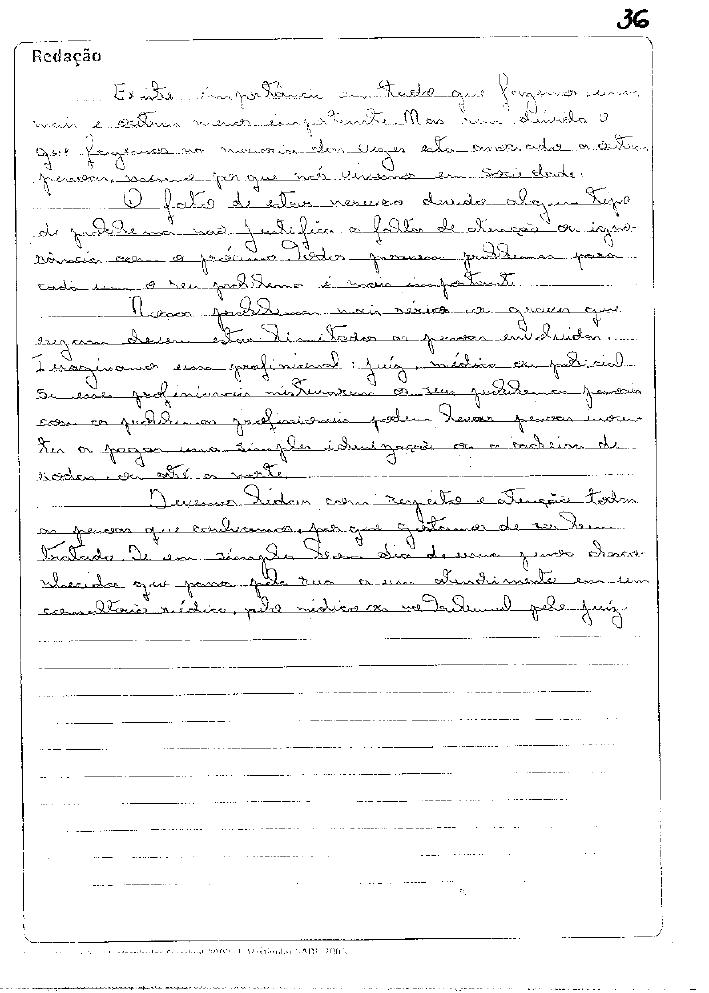 36
Redação
Existe importância em tudo que fazemos, uns
mais e outros menos importante. Mas sem dúvida o
que fazemos na maioria das vezes esta associado a outras
pessoas, mesmo porque nós vivemos em sociedade.
O fato de estar nervoso devido algum tipo
de problema não justifica a falta de atenção ou igno-
rância com o próximo. Todos possuem problemas para
cada um o seu problema é mais importante.
Nossos problemas mais sérios ou graves que
sejam devem estar limitados as pessoas envolvidas.
Imaginamos um profissional: juiz, médico ou policial
se esses profissionais misturarem os seus problemas pessoais
com os problemas profissionais podem levar pessoas inocen-
tes a pagar uma simples idenização ou a cadeira de
rodas ou até a morte.
Devemos lidar com respeito e atenção todas
as pessoas que conhecemos, por que gostamos de ser bem
tratado. De um simples bom dia de uma pessoa desco-
nhecida que passa pela rua a um atendimento em um
consultório médico, pelo médico ou no tribunal pelo juiz.